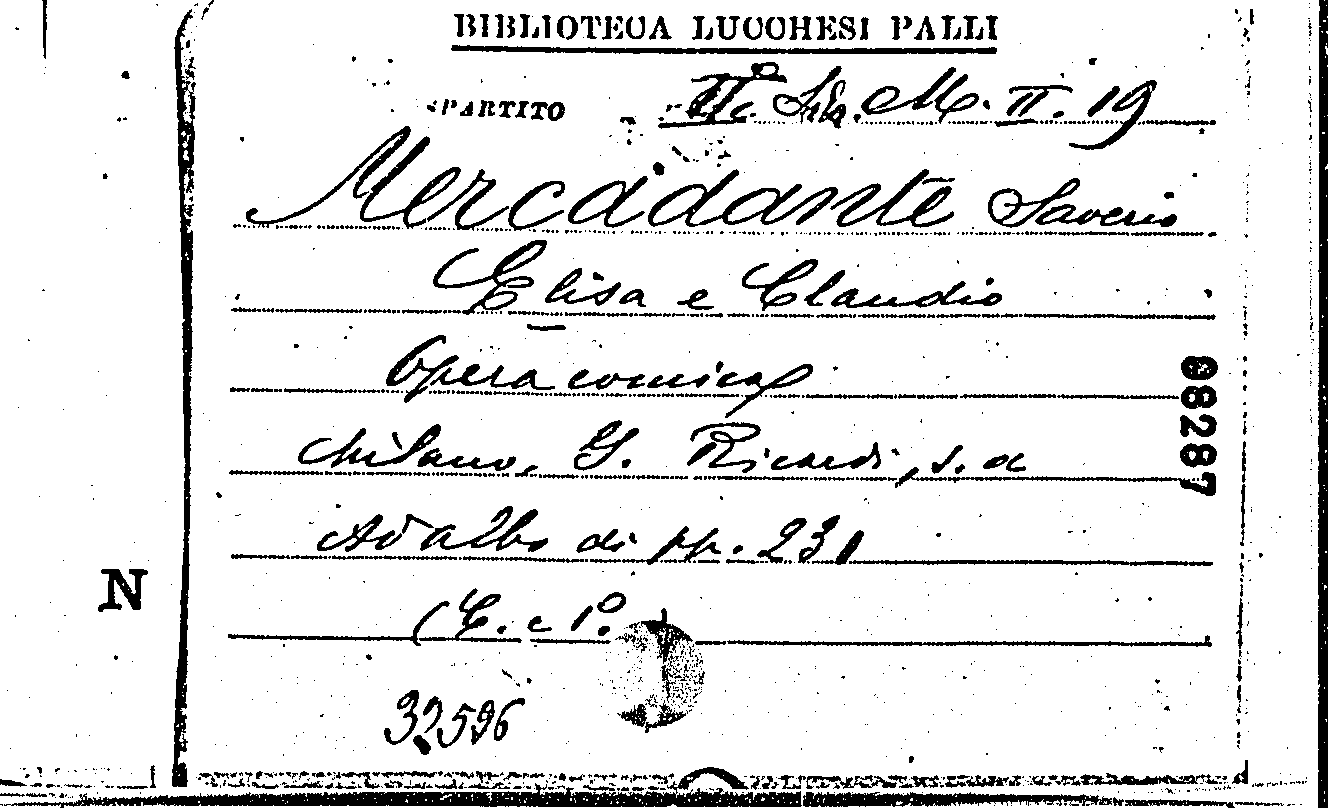 BIBLIOTECA LUCCHESI PALLI
SPARTITO II. M. II. 19
Mercadante Saverio
Elisa e Claudio
Opera comica
Milano, G. Ricordi, s. a
Ad albo di pp. 231
(C. e P.)
32596
08287
N